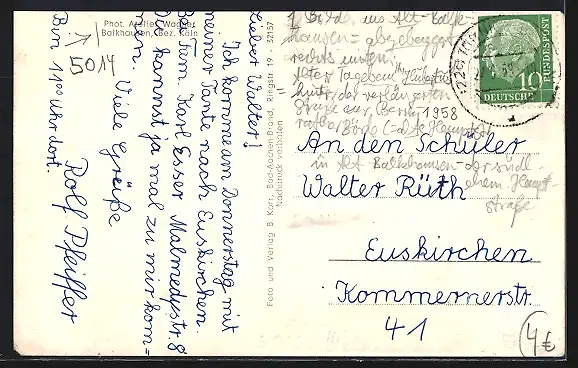 Phot. Atelier Wagner
Balkhausen, Bez. Köln
5014
Lieber Walter!
Ich komme am Donnerstag mit
meiner Tante nach Euskirchen.
Bei Fam. Karl Esser Malmedystr. 8
Du kannst ja mal zu mir kom=
men.
Viele Grüße
Rolf Pfeiffer
Bin 11 00 Uhr dort.
Foto und Verlag B. Korr, Bad-Aachen-Brand, Ringstr. 19 32157
Nachdruck verboten
1 Bild aus Alt-Balk-
hausen = abgebaggert
rechts unten:
hinter der verlängerten
1958
in Alt Balkhausen - der südl-
ichen Haupt-
straße
DEUTSCHE BUNDESPOST
10
An den Schüler
Walter Rüth
Euskirchen
Kommernerstr.
41
4€